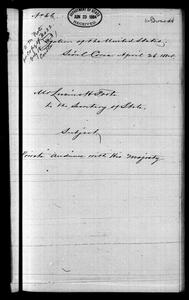 No 66
DEPARTMENT OF STATE
JUN 23 1884
RECEIVED
Legation of the United States
Seoul Corea April 26 1884
Mr Lucius H. Foote
to the Secretary of State.
Subject
Private Audience with His Majesty